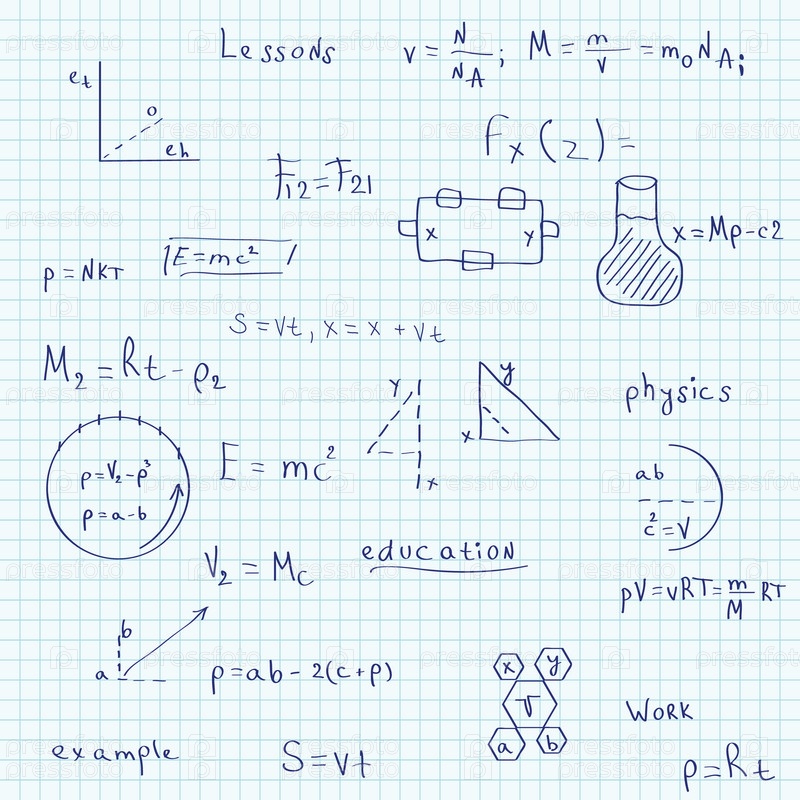 Lessons
v = N/NA; M = m/v = m₀NA;
et
o
eh
Fx(2) =
F12 = F21
x y
x = Mp - c2
p = NKT
E = mc²
S = Vt, x = x + Vt
M2 = Rt - ρ2
y
x
y
x
physics
p = V2 - p³
p = a - b
E = mc²
ab
c² = V
V2 = Mc
education
pV = vRT = m/M RT
b
a
p = ab - 2(c + p)
x y
V
a b
WORK
example
S = Vt
p = Rt
pressfoto